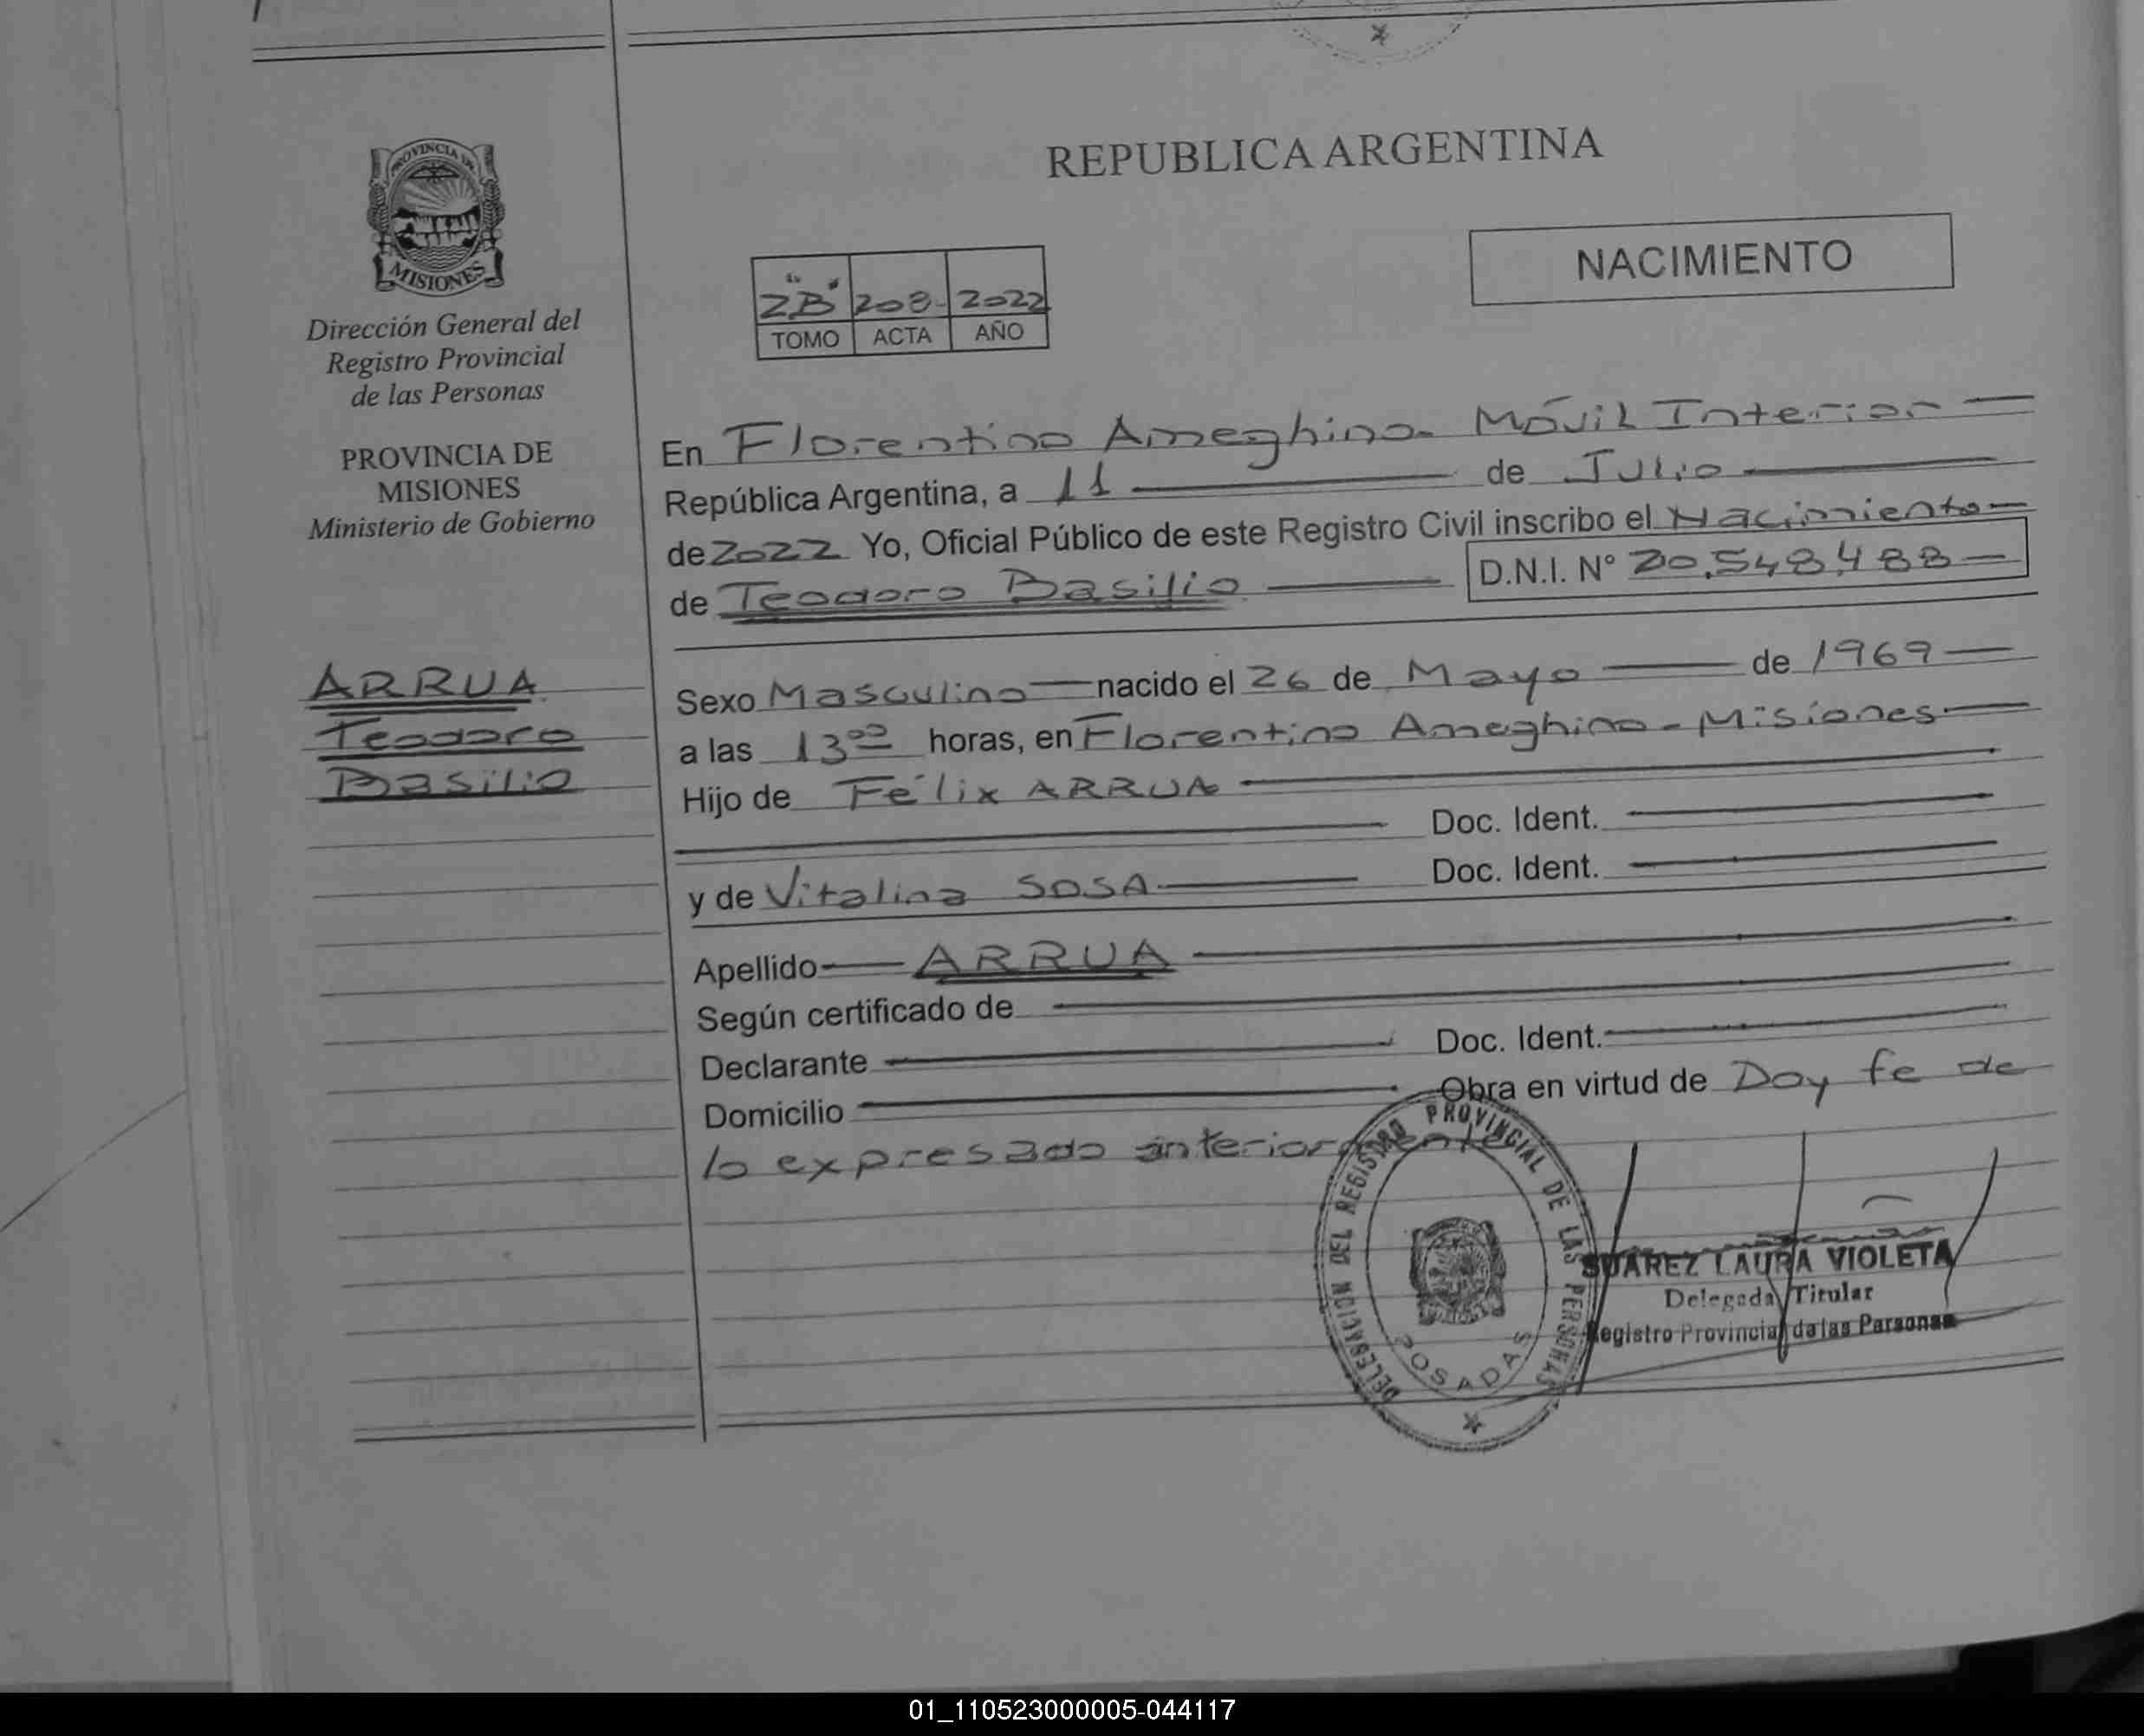 PROVINCIA DE
MISIONES
Dirección General del
Registro Provincial
de las Personas
PROVINCIA DE
MISIONES
Ministerio de Gobierno
ARRUA
Teodoro
Basilio
REPUBLICA ARGENTINA
NACIMIENTO
"2B" 208- 2022
TOMO ACTA AÑO
En Florentino Ameghino- Móvil Interior
República Argentina, a 11 de Julio
de 2022 Yo, Oficial Público de este Registro Civil inscribo el Nacimiento
de Teodoro Basilio D.N.I. Nº 20.548.488
Sexo Masculino nacido el 26 de Mayo de 1969
a las 13⁰⁰ horas, en Florentino Ameghino - Misiones
Hijo de Félix ARRUA
Doc. Ident.
y de Vitalina SOSA Doc. Ident.
Apellido ARRUA
Según certificado de
Declarante Doc. Ident.
Domicilio Obra en virtud de Doy fe de
lo expresado anteriormente
DELEGACION DEL REGISTRO PROVINCIAL DE LAS PERSONAS
POSADAS
SUAREZ LAURA VIOLETA
Delegada Titular
Registro Provincial de las Personas
01_110523000005-044117